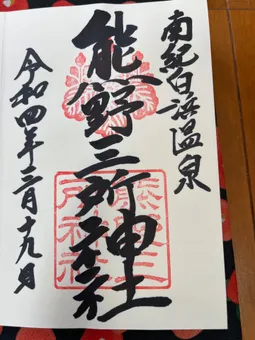 南紀白浜温泉
熊野三所神社
令和四年三月十九日
熊野三
所神社